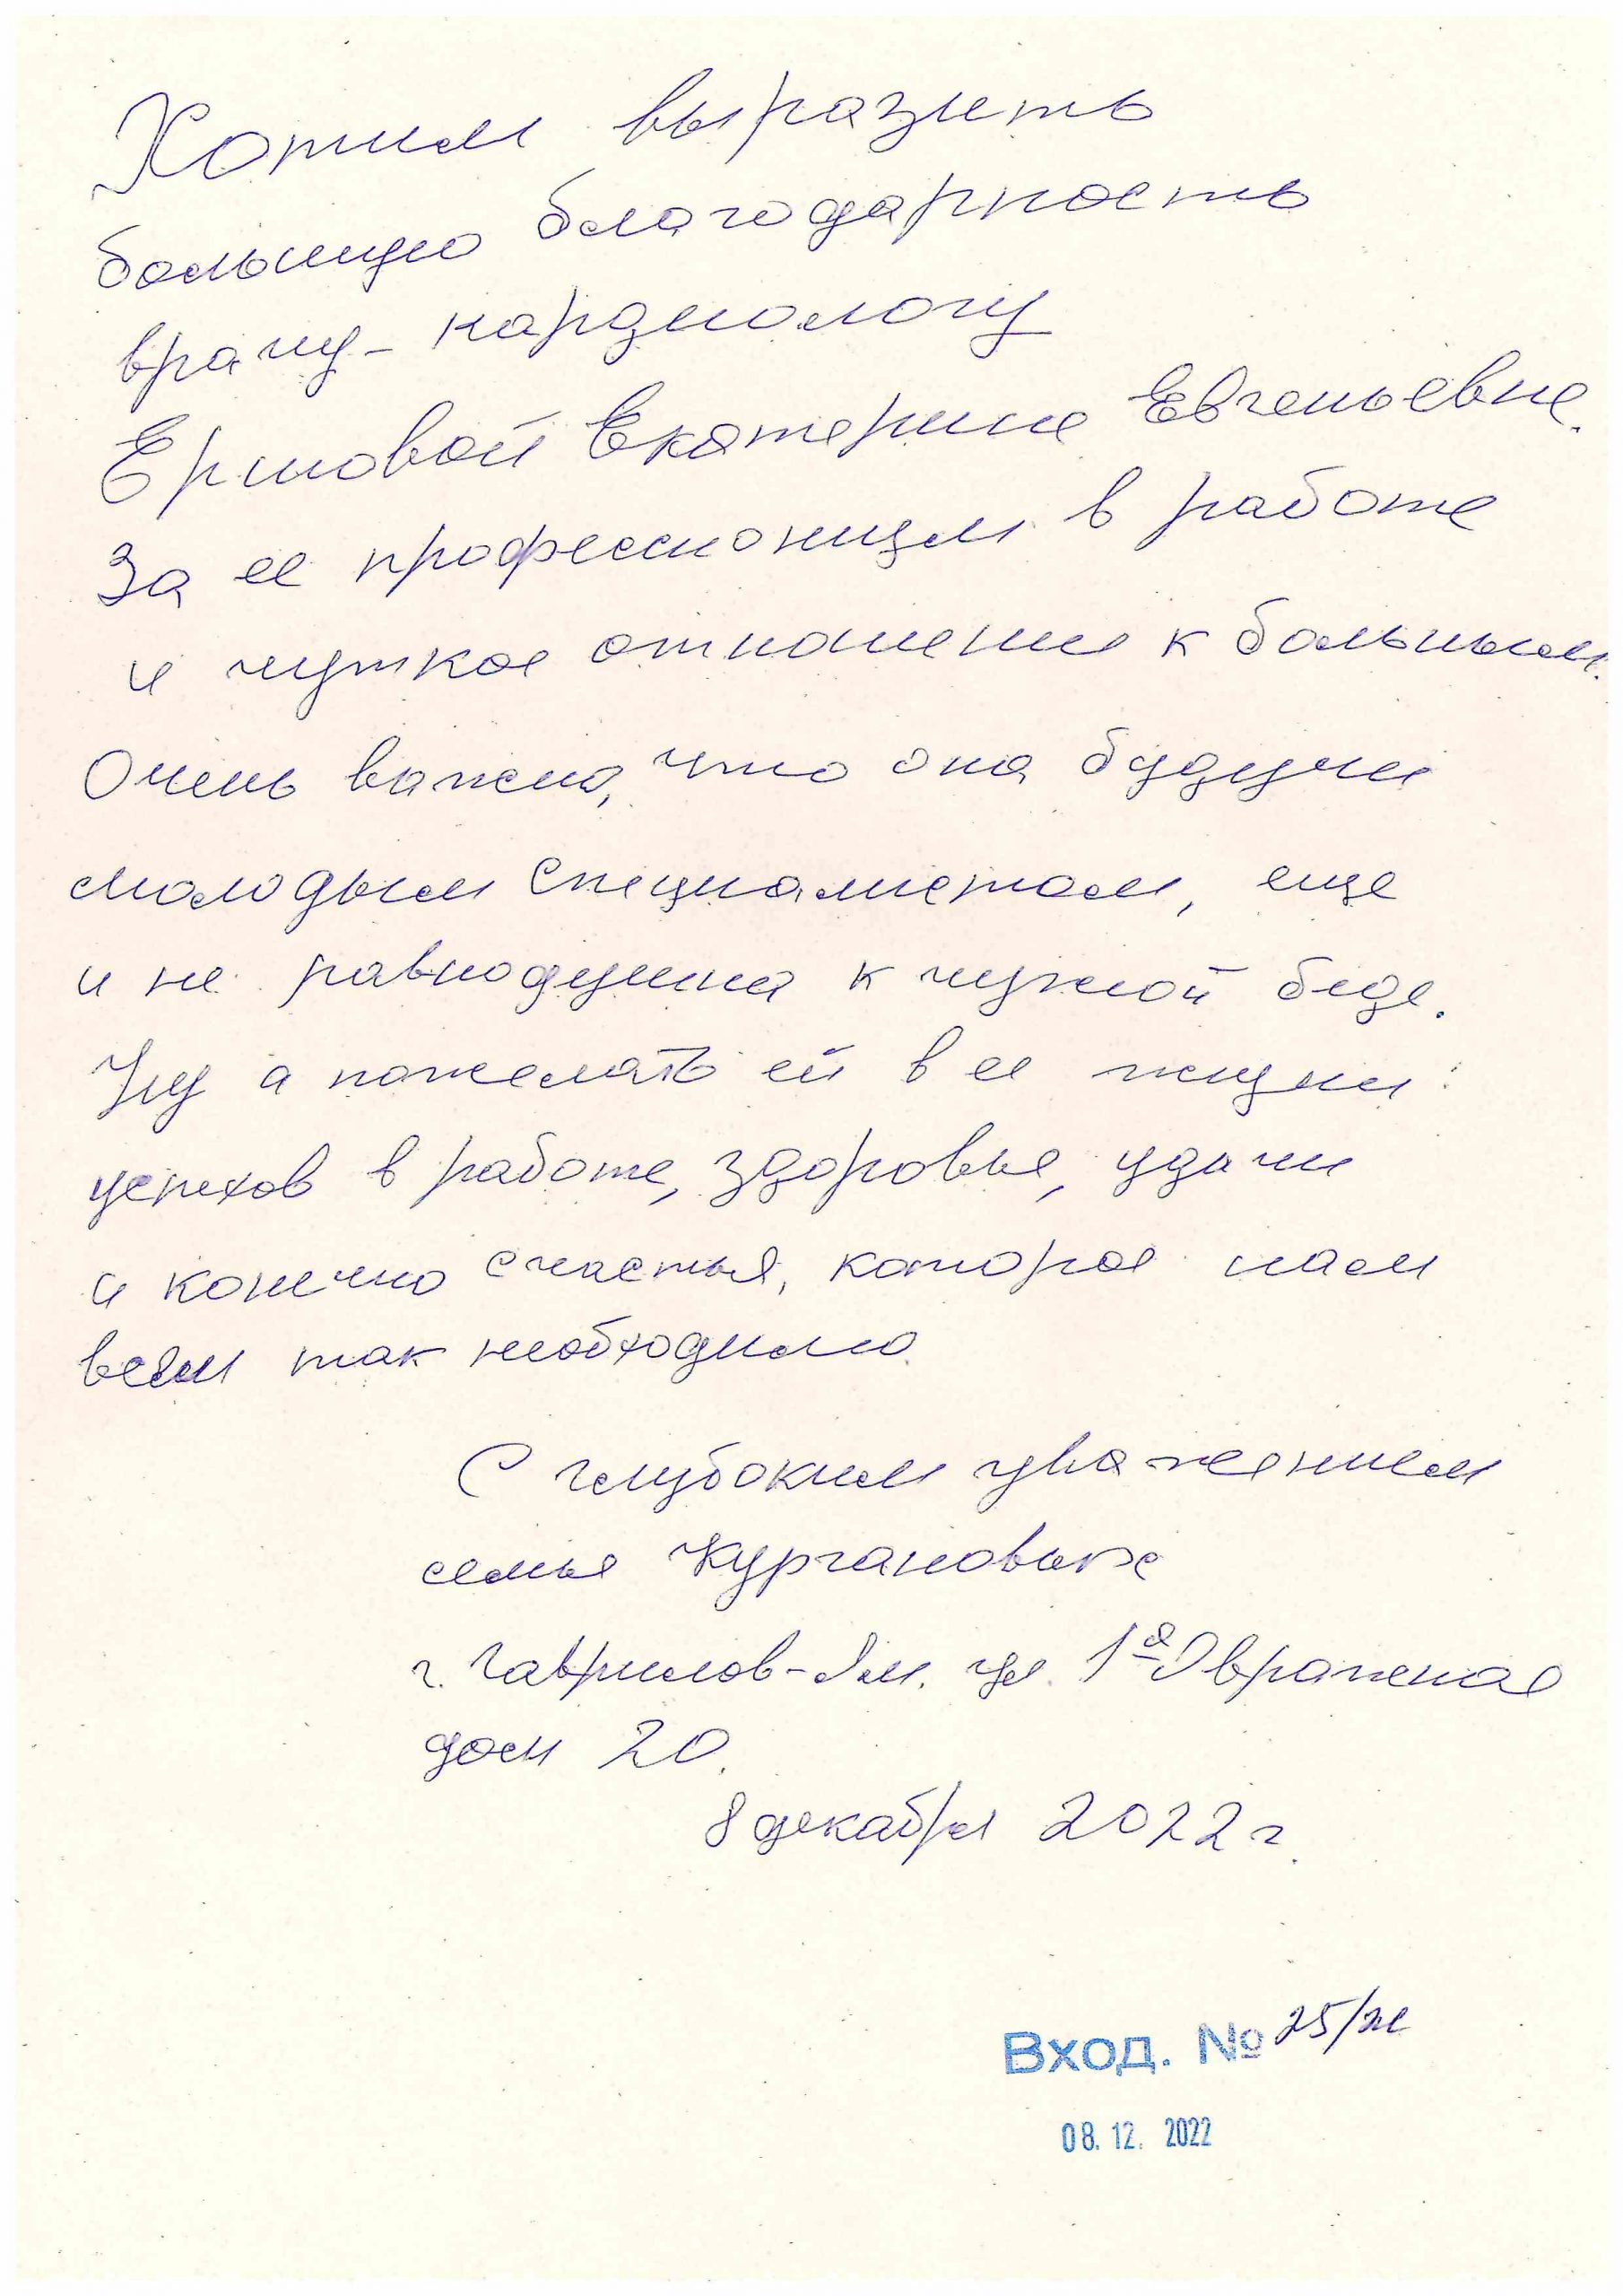 Хотим выразить
большую благодарность
врачу-кардиологу
Ершовой Екатерине Евгеньевне.
За ее профессионизм в работе
и чуткое отношение к больным.
Очень важно, что она будучи
молодым специалистом, еще
и не равнодушна к чужой беде.
Ну а пожелать ей в ее жизни:
успехов в работе, здоровья, удачи
и конечно счастья, которое нам
всем так необходимо.
С глубоким уважением
семья Кургановых
г. Гаврилов-Ям. ул. 1ая Овражная
дом 20.
8 декабря 2022 г.
Вход. № 25/
08. 12. 2022